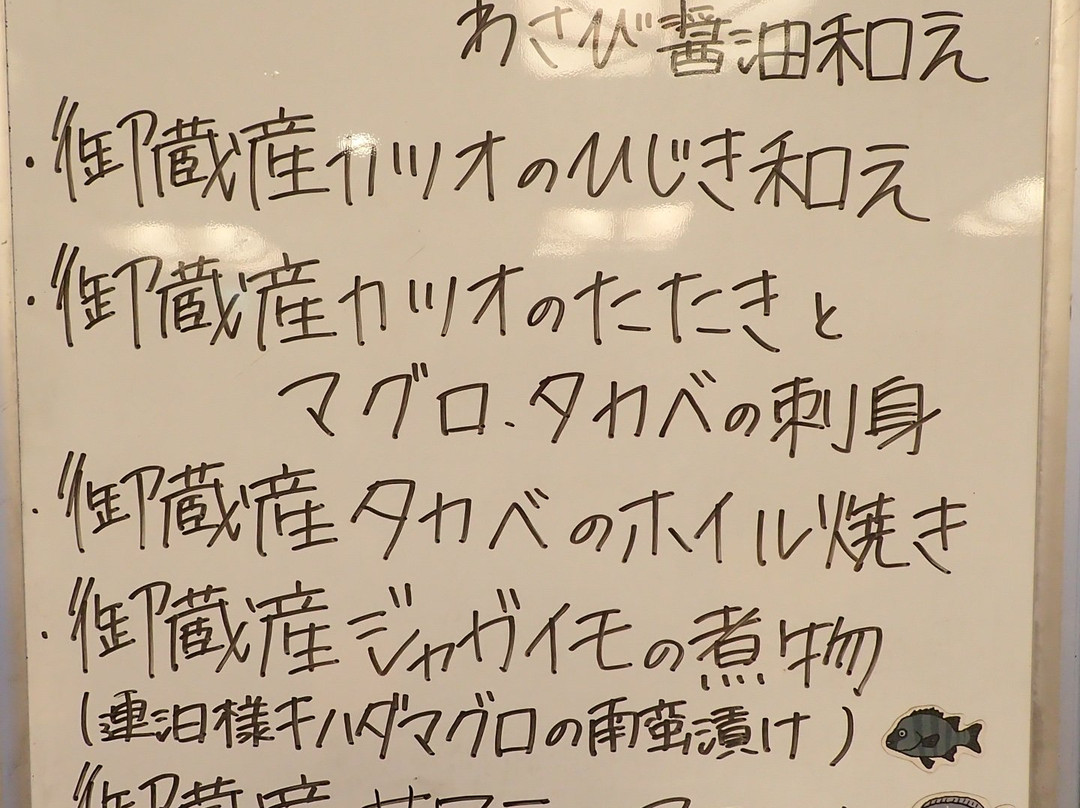 わさび醤油和え
・御蔵産カツオのひじき和え
・御蔵産カツオのたたきと
マグロ、タカベの刺身
・御蔵産タカベのホイル焼き
・御蔵産ジャガイモの煮物
(連泊様キハダマグロの南蛮漬け)
御蔵産